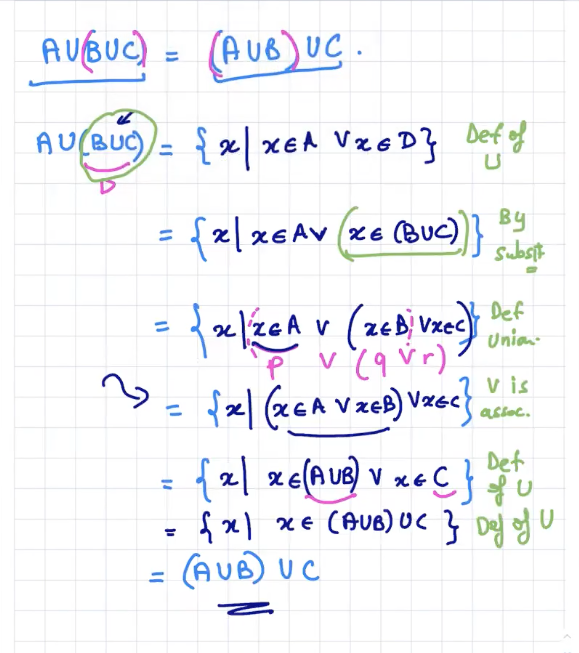 A∪(B∪C) = (A∪B)∪C.
A∪(B∪C) = {x| x∈A ∨ x∈D} Def of ∪
D
= {x| x∈A ∨ (x∈(B∪C))} By subsit
= {x| x∈A ∨ (x∈B ∨ x∈C)} Def Union.
p ∨ (q ∨ r)
= {x| (x∈A ∨ x∈B) ∨ x∈C} ∨ is assoc.
= {x| x∈(A∪B) ∨ x∈C} Def of ∪
= {x| x∈(A∪B)∪C} Def of ∪
= (A∪B)∪C